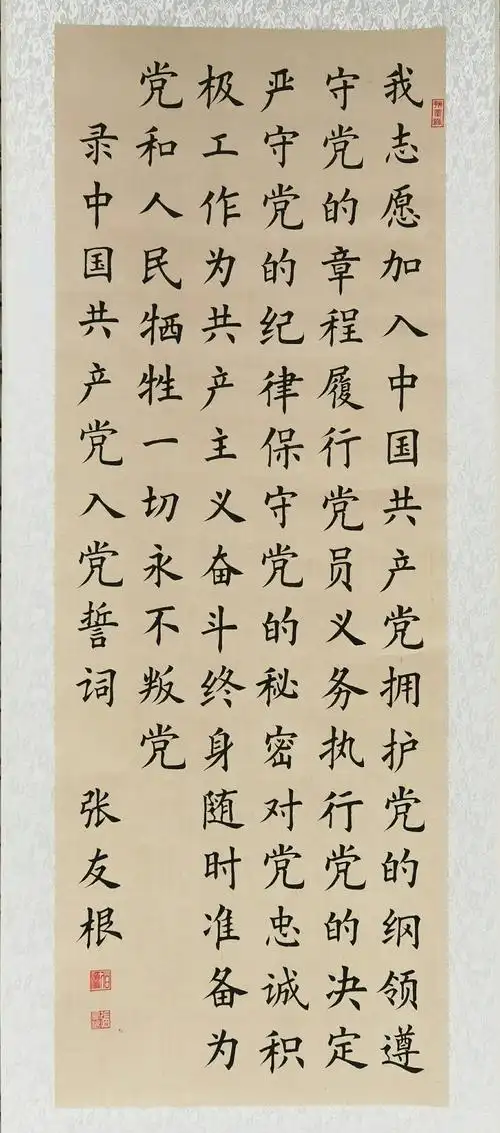 我志愿加入中国共产党拥护党的纲领遵
守党的章程履行党员义务执行党的决定
严守党的纪律保守党的秘密对党忠诚积
极工作为共产主义奋斗终身随时准备为
党和人民牺牲一切永不叛党
录中国共产党入党誓词 张友根